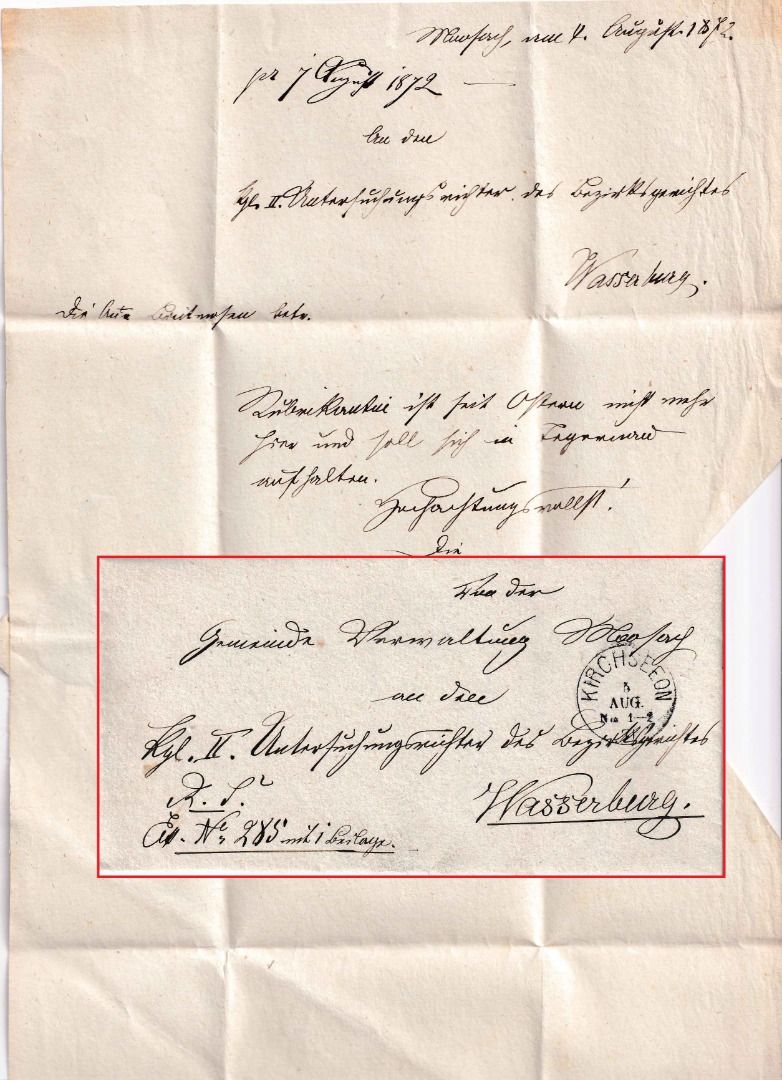 Moosach, am 4. August 1872.
pr 7 August 1872
An den
kgl. II. Untersuchungsrichter des Bezirksgerichtes
Wasserburg.
Die betr.
Rubrikantin ist seit Ostern nicht mehr
hier und soll sich in Tegernau
aufhalten.
Hochachtungsvollst!
Die
Von der
Gemeinde Verwaltung Moosach
an den
Kgl. II. Untersuchungsrichter des Bezirksgerichtes
R. S.
Wasserburg.
No. 285 mit 1 Beilage.
KIRCHSEEON
5
AUG.
Nm 1-2